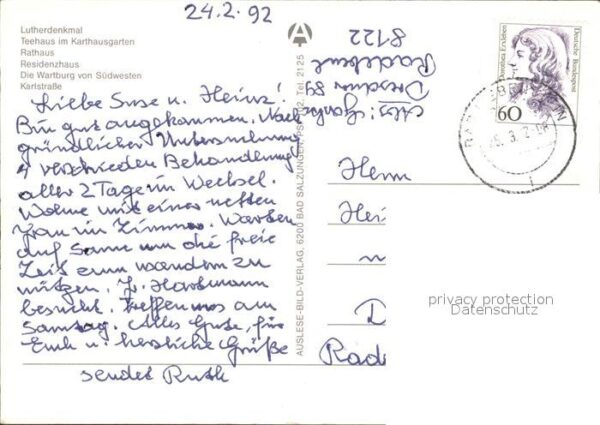 24.2.92
Lutherdenkmal
Teehaus im Karthausgarten
Rathaus
Residenzhaus
Die Wartburg von Südwesten
Karlstraße
Liebe Suse u. Heinz!
Bin gut angekommen. Nach
gründlicher Untersuchung
4 verschieden Behandlung
aller 2 Tage im Wechsel.
Wohne mit einer netten
Frau im Zimmer. Warten
auf Sonne um die freie
Zeit zum wandern zu
nützen. Fr. Hartmann
besucht. Treffen uns am
Samstag. Alles Gute, für
Euch u. herzliche Grüße
sendet Ruth
AUSLESE-BILD-VERLAG, 6200 BAD SALZUNGEN, PSF 102, Tel. 2125
Abs:
Dresdner 88
Radebeul
8122
Dorothea Erxleben
Deutsche Bundespost
60
Herrn
Hei
D
Rade
privacy protection
Datenschutz